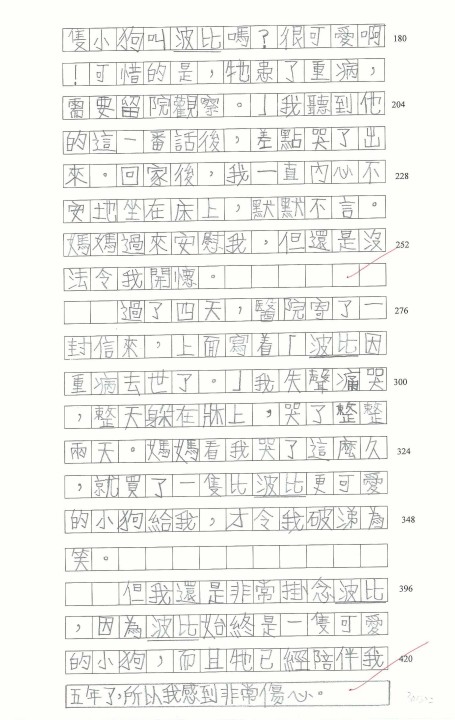 隻小狗叫波比嗎？很可愛啊 180
！可惜的是，牠患了重病，
需要留院觀察。」我聽到他 204
的這一番話後，差點哭了出
來。回家後，我一直內心不 228
安地坐在床上，默默不言。
媽媽過來安慰我，但還是沒 252
法令我開懷。
過了四天，醫院寄了一 276
封信來，上面寫着「波比因
重病去世了。」我失聲痛哭 300
，整天躲在牀上，哭了整整
兩天。媽媽看我哭了這麼久 324
，就買了一隻比波比更可愛
的小狗給我，才令我破涕為 348
笑。
但我還是非常掛念波比 396
，因為波比始終是一隻可愛
的小狗，而且牠已經陪伴我 420
五年了，所以我感到非常傷心。